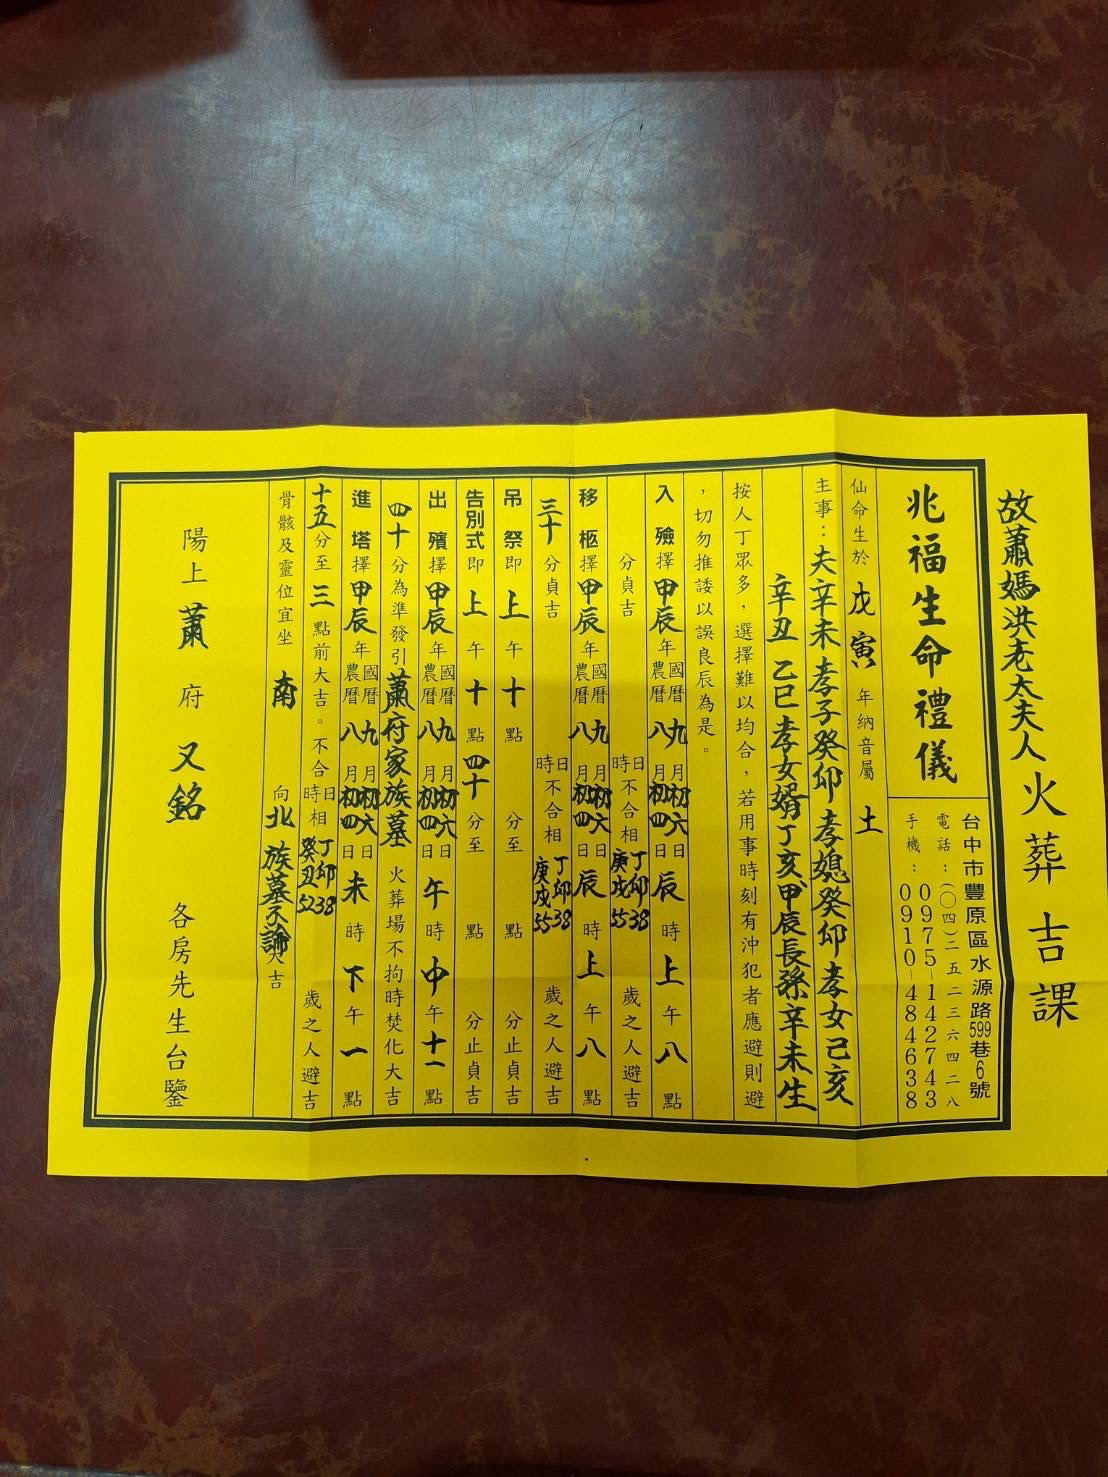 故蕭媽洪老太夫人火葬吉課
兆福生命禮儀
台中市豐原區水源路599巷6號
電話：(〇四)二五二三六四二八
0975-142743
手機：0910-484638
仙命生於戊寅年納音屬土
主事：夫辛未孝子癸卯孝媳癸卯孝女己亥
辛丑 乙巳孝女婿丁亥甲辰長孫辛未生
按人丁眾多，選擇難以均合，若用事時刻有沖犯者應避則避
，切勿推諉以誤良辰為是。
入殮擇甲辰年國曆九月初六日農曆八月初四日辰時上午八點
分貞吉 日時不合相丁卯38庚戌55歲之人避吉
移柩擇甲辰年國曆九月初六日農曆八月初四日辰時上午八點
三十分貞吉 日時不合相丁卯38庚戌55歲之人避吉
吊祭即上午十點 分至 點 分止貞吉
告別式即上午十點四十分至 點 分止貞吉
出殯擇甲辰年國曆九月初六日農曆八月初四日午時中午十一點
四十分為準發引蕭府家族墓火葬場不拘時焚化大吉
進塔擇甲辰年國曆九月初六日農曆八月初四日未時下午一點
十五分至三點前大吉。不合日時相丁卯38癸丑52歲之人避吉
骨骸及靈位宜坐南向北族墓不論大吉
陽上蕭府又銘各房先生台鑒